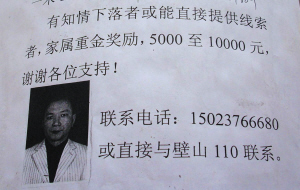 有知情下落者或能直接提供线索
者，家属重金奖励，5000 至 10000 元，
谢谢各位支持！
联系电话：15023766680
或直接与壁山 110 联系。